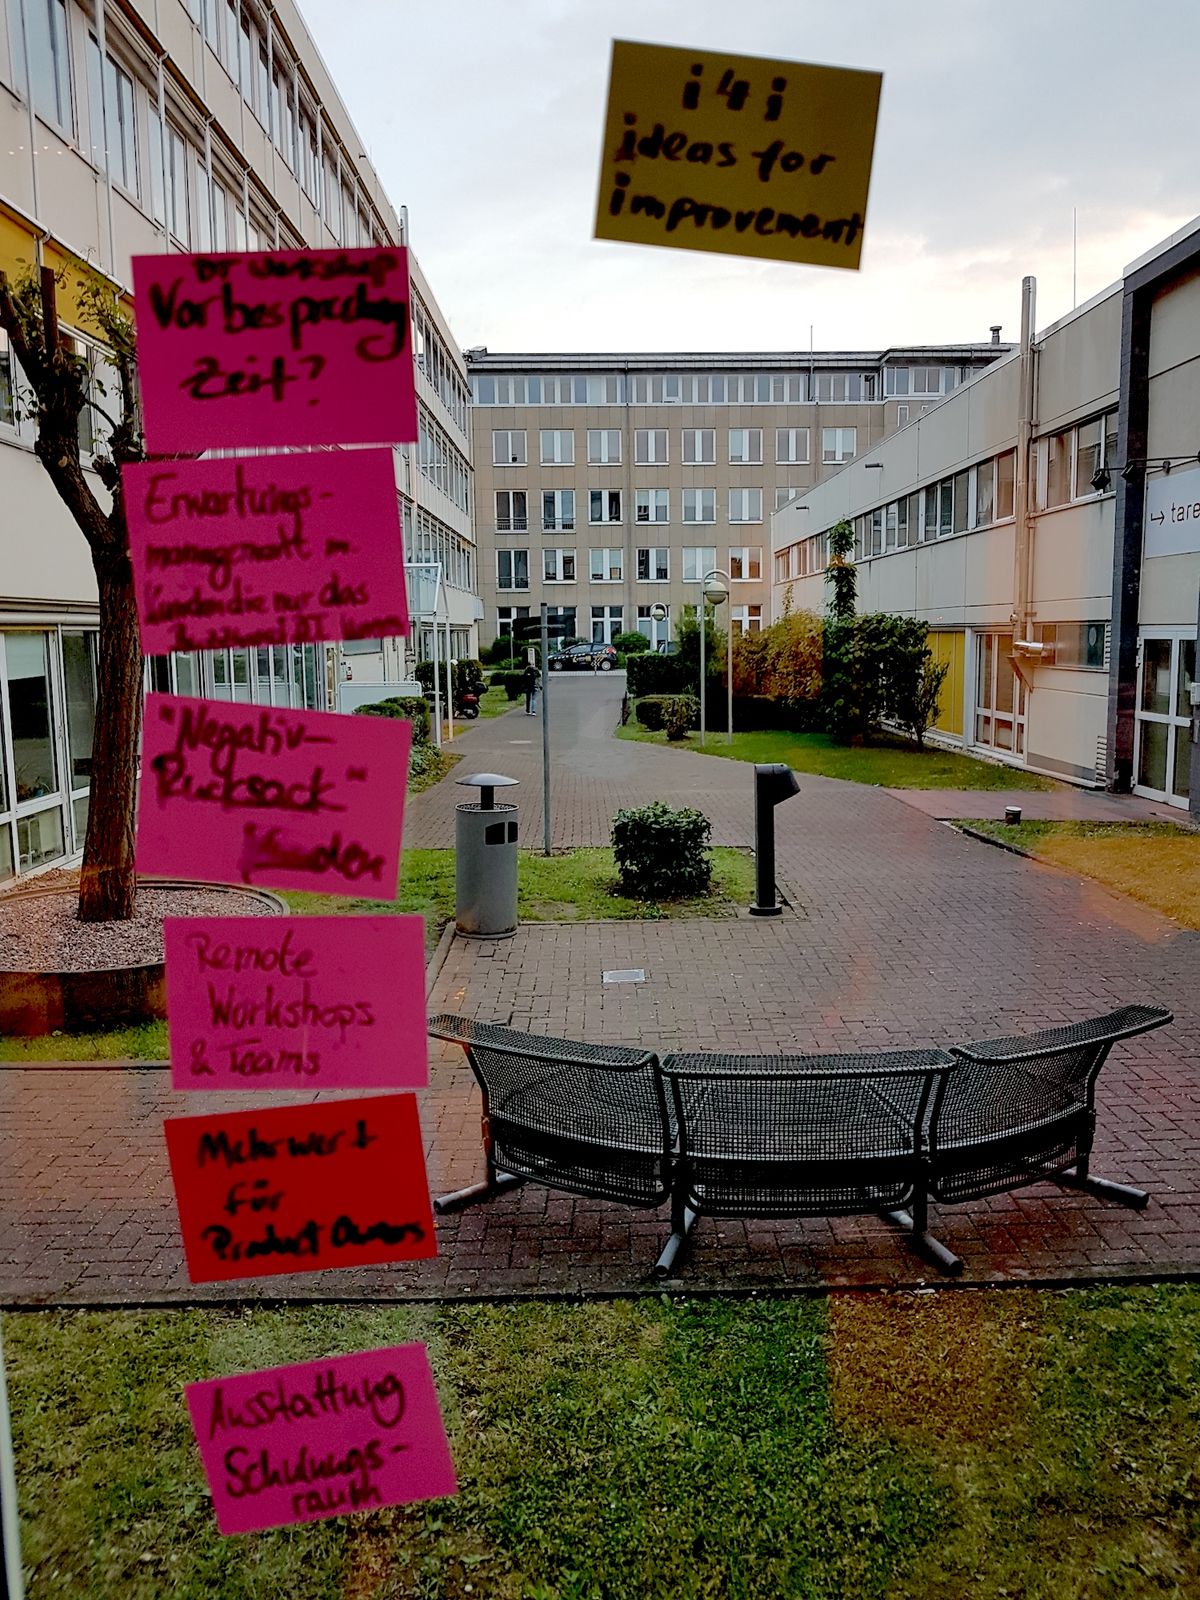 i 4 i
ideas for
improvement
DT Workshop
Vorbesprechung
Zeit?
Erwartungs-
management m.
Kunden die nur das
"Negativ-
Rucksack"
Kunden
Remote
Workshops
& Teams
Mehrwert
für
Product Owners
Ausstattung
Schulungs-
raum
→ tare